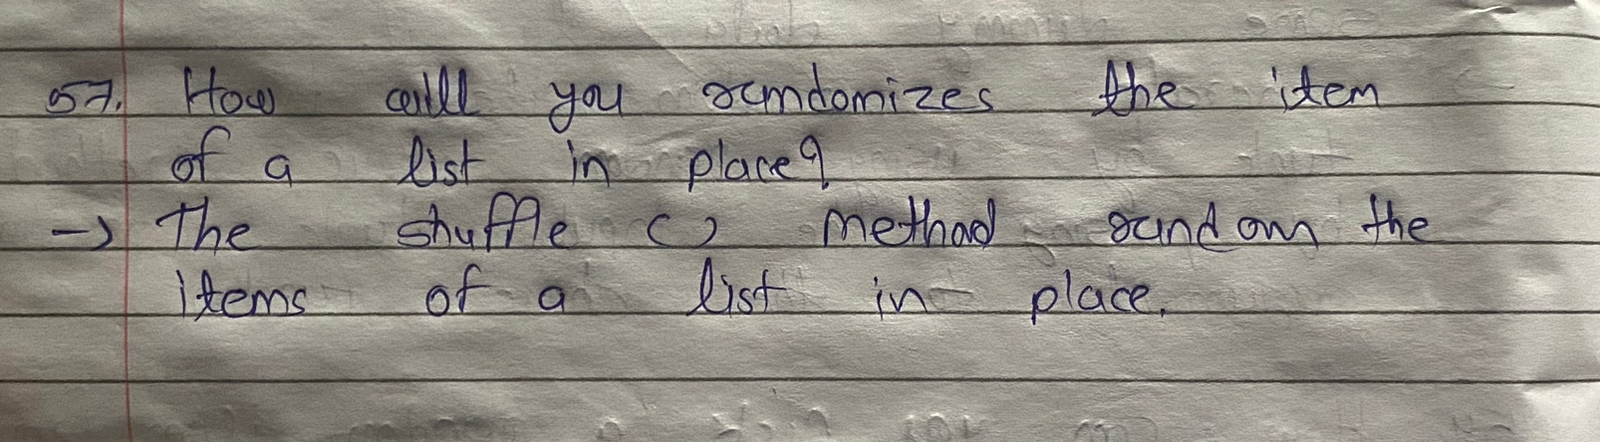 57. How will you randomizes the item
of a list in place?
→ The shuffle () method random the
items of a list in place.